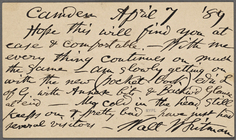 Camden April 7 '89
Hope this will find you at
ease & comfortable. — With me
every thing continues on much
the same — I am slowly getting on
with the new pocket-book ed'n
of L of G, with Annex & Backward Glance
at end — My cold in the head still
keeps on & pretty bad — have just had
several visitors Walt Whitman